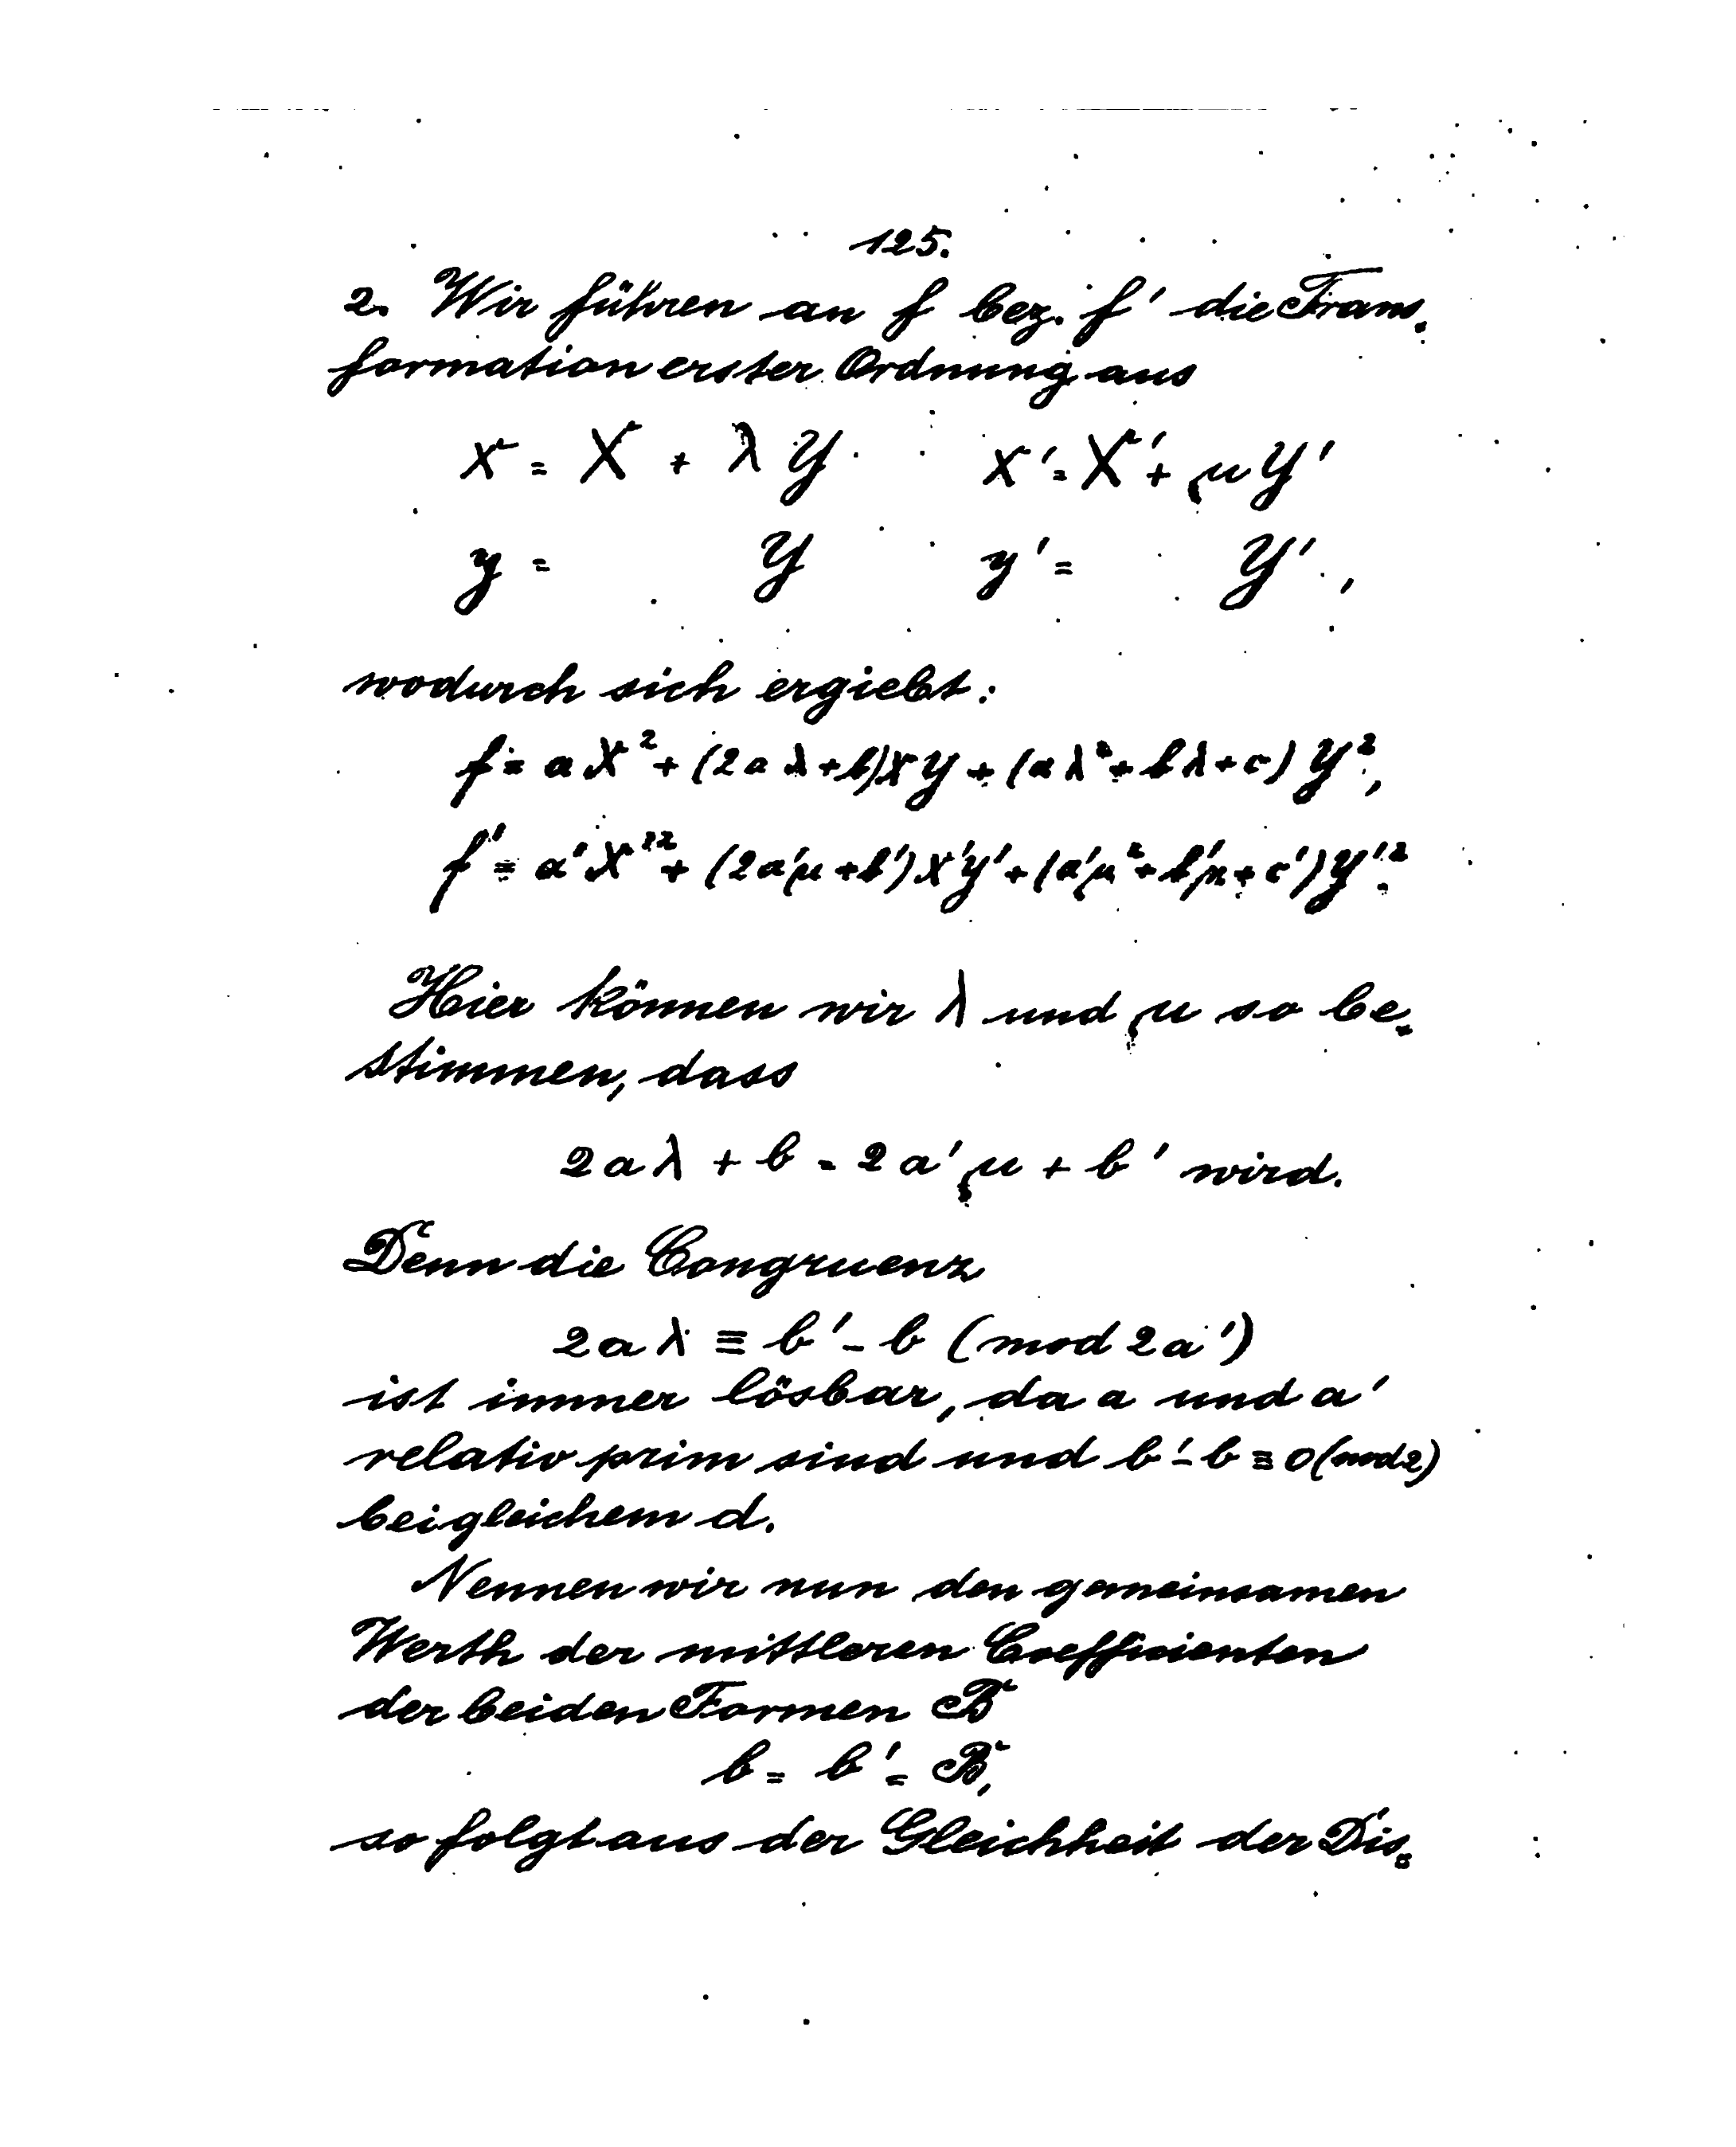 125.
2. Wir führen an f bez. f' die Trans-
formation erster Ordnung aus
x = X + λ Y    x' = X' + μ Y'
y = Y    y' = Y',
wodurch sich ergiebt:
f = a X² + (2aλ+b)XY + (aλ²+bλ+c) Y²,
f' = a'X'² + (2a'μ+b')X'Y' + (a'μ²+b'μ+c')Y'².
Hier können wir λ und μ so be-
stimmen, dass
2aλ + b = 2a'μ + b' wird.
Denn die Congruenz
2aλ ≡ b' - b (mod 2a')
ist immer lösbar, da a und a'
relativ prim sind und b' - b ≡ 0 (mod 2)
bei gleichem d.
Nennen wir nun den gemeinsamen
Werth der mittleren Coefficienten
der beiden Formen B
b = b' = B,
so folgt aus der Gleichheit der Dis-